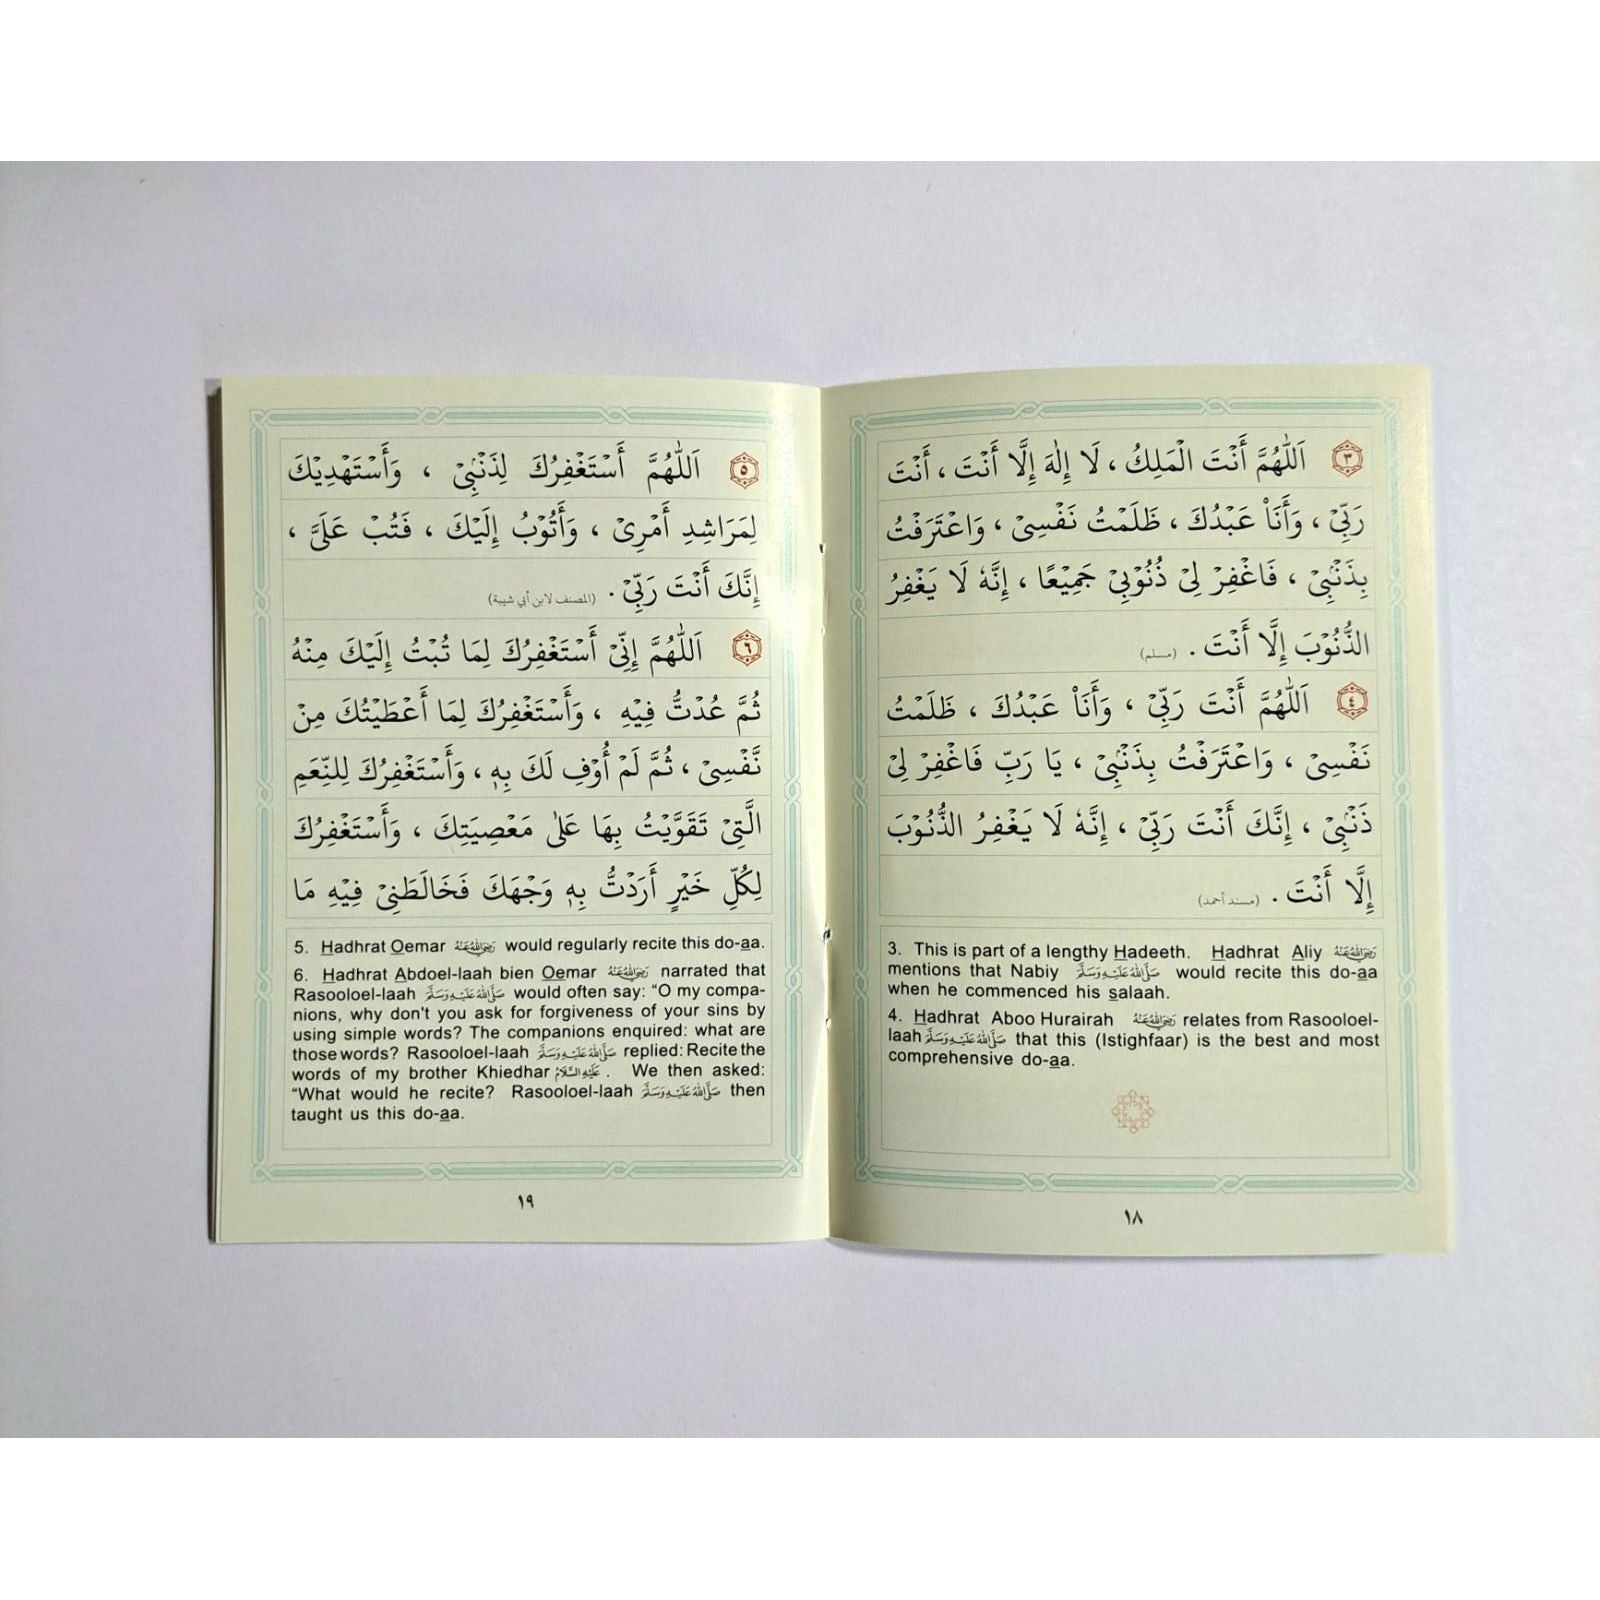 ٣ اَللّٰهُمَّ أَنْتَ الْمَلِكُ ، لَا إِلٰهَ إِلَّا أَنْتَ ، أَنْتَ
رَبِّيْ ، وَأَنَاْ عَبْدُكَ ، ظَلَمْتُ نَفْسِيْ ، وَاعْتَرَفْتُ
بِذَنْبِيْ ، فَاغْفِرْ لِيْ ذُنُوْبِيْ جَمِيْعًا ، إِنَّهٗ لَا يَغْفِرُ
الذُّنُوْبَ إِلَّا أَنْتَ . (مسلم)
٤ اَللّٰهُمَّ أَنْتَ رَبِّيْ ، وَأَنَاْ عَبْدُكَ ، ظَلَمْتُ
نَفْسِيْ ، وَاعْتَرَفْتُ بِذَنْبِيْ ، يَا رَبِّ فَاغْفِرْ لِيْ
ذَنْبِيْ ، إِنَّكَ أَنْتَ رَبِّيْ ، إِنَّهٗ لَا يَغْفِرُ الذُّنُوْبَ
إِلَّا أَنْتَ . (مسند أحمد)
3. This is part of a lengthy Hadeeth. Hadhrat Aliy رَضِيَ اللهُ عَنْهُ
mentions that Nabiy صَلَّى اللهُ عَلَيْهِ وَسَلَّمَ would recite this do-aa
when he commenced his salaah.
4. Hadhrat Aboo Hurairah رَضِيَ اللهُ عَنْهُ relates from Rasooloel-
laah صَلَّى اللهُ عَلَيْهِ وَسَلَّمَ that this (Istighfaar) is the best and most
comprehensive do-aa.
١٨
٥ اَللّٰهُمَّ أَسْتَغْفِرُكَ لِذَنْبِيْ ، وَأَسْتَهْدِيْكَ
لِمَرَاشِدِ أَمْرِيْ ، وَأَتُوْبُ إِلَيْكَ ، فَتُبْ عَلَيَّ ،
إِنَّكَ أَنْتَ رَبِّيْ . (المصنف لابن أبي شيبة)
٦ اَللّٰهُمَّ إِنِّيْ أَسْتَغْفِرُكَ لِمَا تُبْتُ إِلَيْكَ مِنْهُ
ثُمَّ عُدْتُّ فِيْهِ ، وَأَسْتَغْفِرُكَ لِمَا أَعْطَيْتُكَ مِنْ
نَّفْسِيْ ، ثُمَّ لَمْ أُوْفِ لَكَ بِهٖ ، وَأَسْتَغْفِرُكَ لِلنِّعَمِ
الَّتِيْ تَقَوَّيْتُ بِهَا عَلٰى مَعْصِيَتِكَ ، وَأَسْتَغْفِرُكَ
لِكُلِّ خَيْرٍ أَرَدْتُّ بِهٖ وَجْهَكَ فَخَالَطَنِيْ فِيْهِ مَا
5. Hadhrat Oemar رَضِيَ اللهُ عَنْهُ would regularly recite this do-aa.
6. Hadhrat Abdoel-laah bien Oemar رَضِيَ اللهُ عَنْهُ narrated that
Rasooloel-laah صَلَّى اللهُ عَلَيْهِ وَسَلَّمَ would often say: “O my compa-
nions, why don't you ask for forgiveness of your sins by
using simple words? The companions enquired: what are
those words? Rasooloel-laah صَلَّى اللهُ عَلَيْهِ وَسَلَّمَ replied: Recite the
words of my brother Khiedhar عَلَيْهِ السَّلَامُ . We then asked:
“What would he recite? Rasooloel-laah صَلَّى اللهُ عَلَيْهِ وَسَلَّمَ then
taught us this do-aa.
١٩